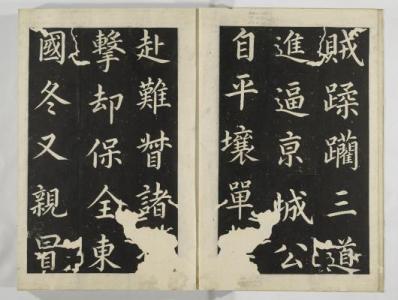 賊蹂躪三道
進逼京城公
自平壤單
赴難督諸
擊却保全東
國冬又親冒